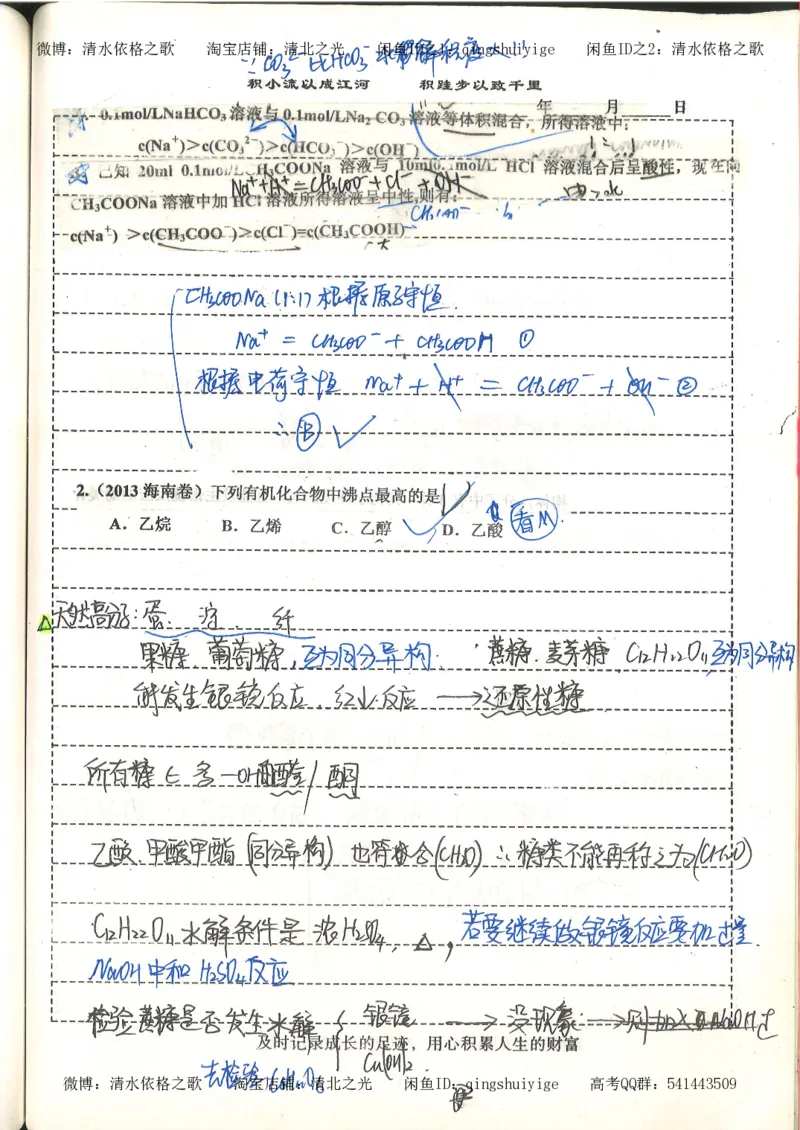 微博：清水依格之歌 淘宝店铺：清北之光 闲鱼ID之1：qingshuiyige 闲鱼ID之2：清水依格之歌
∵ CO₃²⁻比HCO₃⁻水解程度大！
积小流以成江河 积跬步以致千里
年 月 日
0.1mol/LNaHCO₃溶液与0.1mol/LNa₂CO₃溶液等体积混合，所得溶液中：
c(Na⁺)＞c(CO₃²⁻)＞c(HCO₃⁻)＞c(OH⁻)
已知 20ml 0.1mol/LCH₃COONa 溶液与 10ml0.1mol/L HCl 溶液混合后呈酸性，现在向
Na⁺+H⁺=CH₃COO⁻+Cl⁻+OH⁻
CH₃COONa 溶液中加 HCl 溶液所得溶液呈中性,则有：
c(Na⁺) ＞c(CH₃COO⁻)＞c(Cl⁻)=c(CH₃COOH)
大
CH₃COONa (1:1) 根据原子守恒
Na⁺ = CH₃COO⁻ + CH₃COOH ①
根据电荷守恒 Na⁺ + H⁺ = CH₃COO⁻ + OH⁻ ②
∴ Ⓑ ✓
2.（2013 海南卷）下列有机化合物中沸点最高的是
A．乙烷 B．乙烯 C．乙醇 D．乙酸 看M
△天然高分子：蛋、淀、纤
果糖 葡萄糖，互为同分异构. 蔗糖．麦芽糖 C₁₂H₂₂O₁₁互为同分异构
能发生银镜反应．红火反应 →还原性糖
所有糖 ∈ 含—OH醛/酮
乙酸、甲酸甲酯（同分异构）也符合(CH₂O) ∴糖类不能再称之为(CH₂O)
C₁₂H₂₂O₁₁水解条件是 浓H₂SO₄，△，若要继续做银镜反应要加过量
NaOH中和 H₂SO₄反应
检验蔗糖是否发生水解 { 银镜 → 没现象 → 则加入NaOH过
及时记录成长的足迹，用心积累人生的财富
Cu(OH)₂
去检验 C₆H₁₂O₆
微博：清水依格之歌 淘宝店铺：清北之光 闲鱼ID：qingshuiyige 高考QQ群：541443509